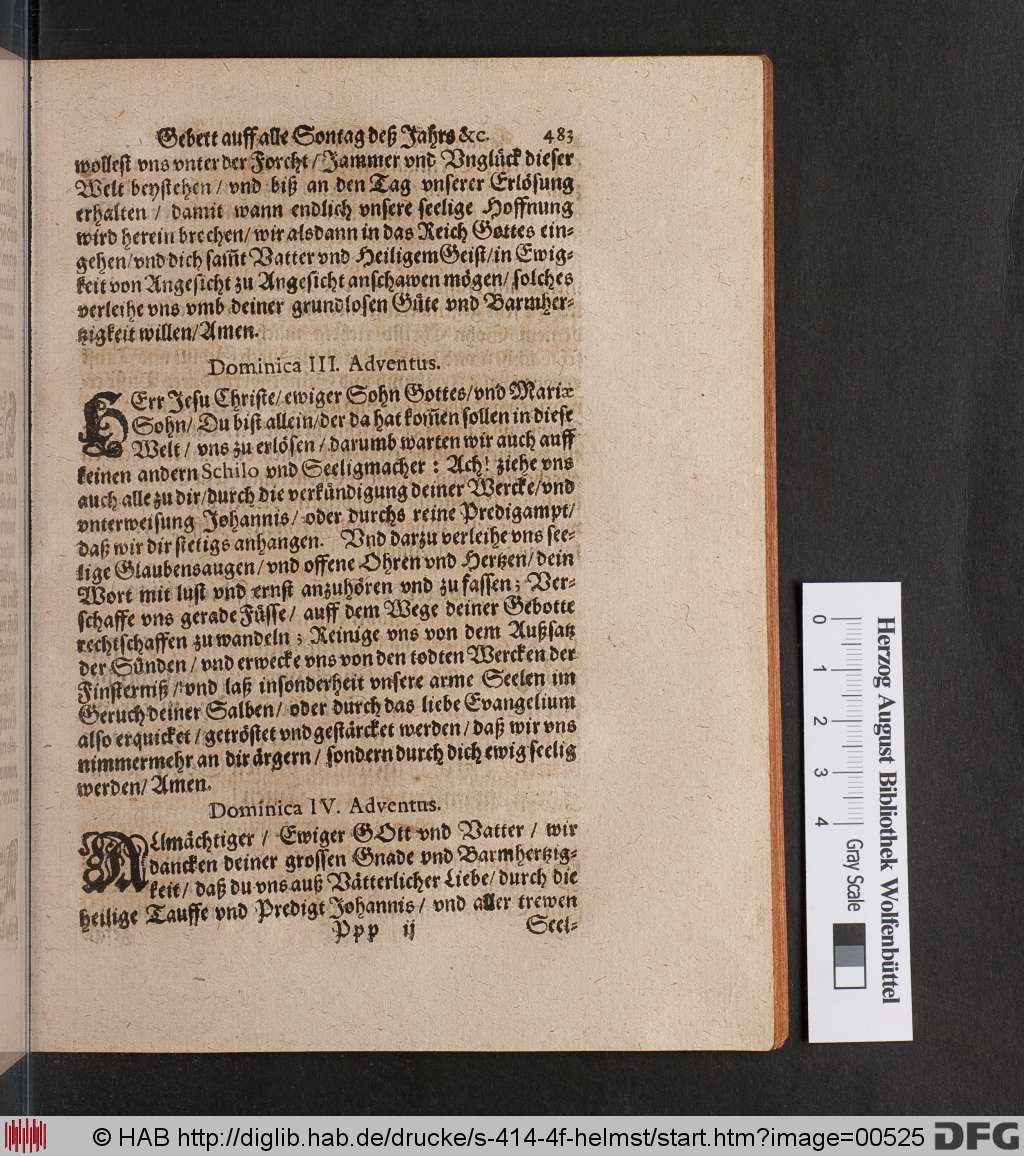 Gebett auff alle Sontag deß Jahrs &c. 483
wollest vns vnter der Forcht / Jammer vnd Vnglück dieser
Welt beystehen / vnd biß an den Tag vnserer Erlösung
erhalten / damit wann endlich vnsere seelige Hoffnung
wird herein brechen / wir alsdann in das Reich Gottes ein-
gehen / vnd dich sam̃t Vatter vnd Heiligem Geist / in Ewig-
keit von Angesicht zu Angesicht anschawen mögen / solches
verleihe vns vmb deiner grundlosen Güte vnd Barmher-
tzigkeit willen / Amen.
Dominica III. Adventus.
HErr Jesu Christe / ewiger Sohn Gottes / vnd Mariæ
Sohn / Du bist allein / der da hat kom̃en sollen in diese
Welt / vns zu erlösen / darumb warten wir auch auff
keinen andern Schilo vnd Seeligmacher : Ach! ziehe vns
auch alle zu dir / durch die verkündigung deiner Wercke / vnd
vnterweisung Johannis / oder durchs reine Predigampt /
daß wir dir stetigs anhangen. Vnd darzu verleihe vns see-
lige Glaubensaugen / vnd offene Ohren vnd Hertzen / dein
Wort mit lust vnd ernst anzuhören vnd zu fassen ; Ver-
schaffe vns gerade Füsse / auff dem Wege deiner Gebotte
rechtschaffen zu wandeln ; Reinige vns von dem Außsatz
der Sünden / vnd erwecke vns von den todten Wercken der
Finsterniß / vnd laß insonderheit vnsere arme Seelen im
Geruch deiner Salben / oder durch das liebe Evangelium
also erquicket / getröstet vnd gestärcket werden / daß wir vns
nimmermehr an dir ärgern / sondern durch dich ewig seelig
werden / Amen.
Dominica IV. Adventus.
ALlmächtiger / Ewiger GOtt vnd Vatter / wir
dancken deiner grossen Gnade vnd Barmhertzig-
keit / daß du vns auß Vätterlicher Liebe / durch die
heilige Tauffe vnd Predigt Johannis / vnd aller trewen
Ppp ij Seel-
0 1 2 3 4 Gray Scale
Herzog August Bibliothek Wolfenbüttel
© HAB http://diglib.hab.de/drucke/s-414-4f-helmst/start.htm?image=00525 DFG